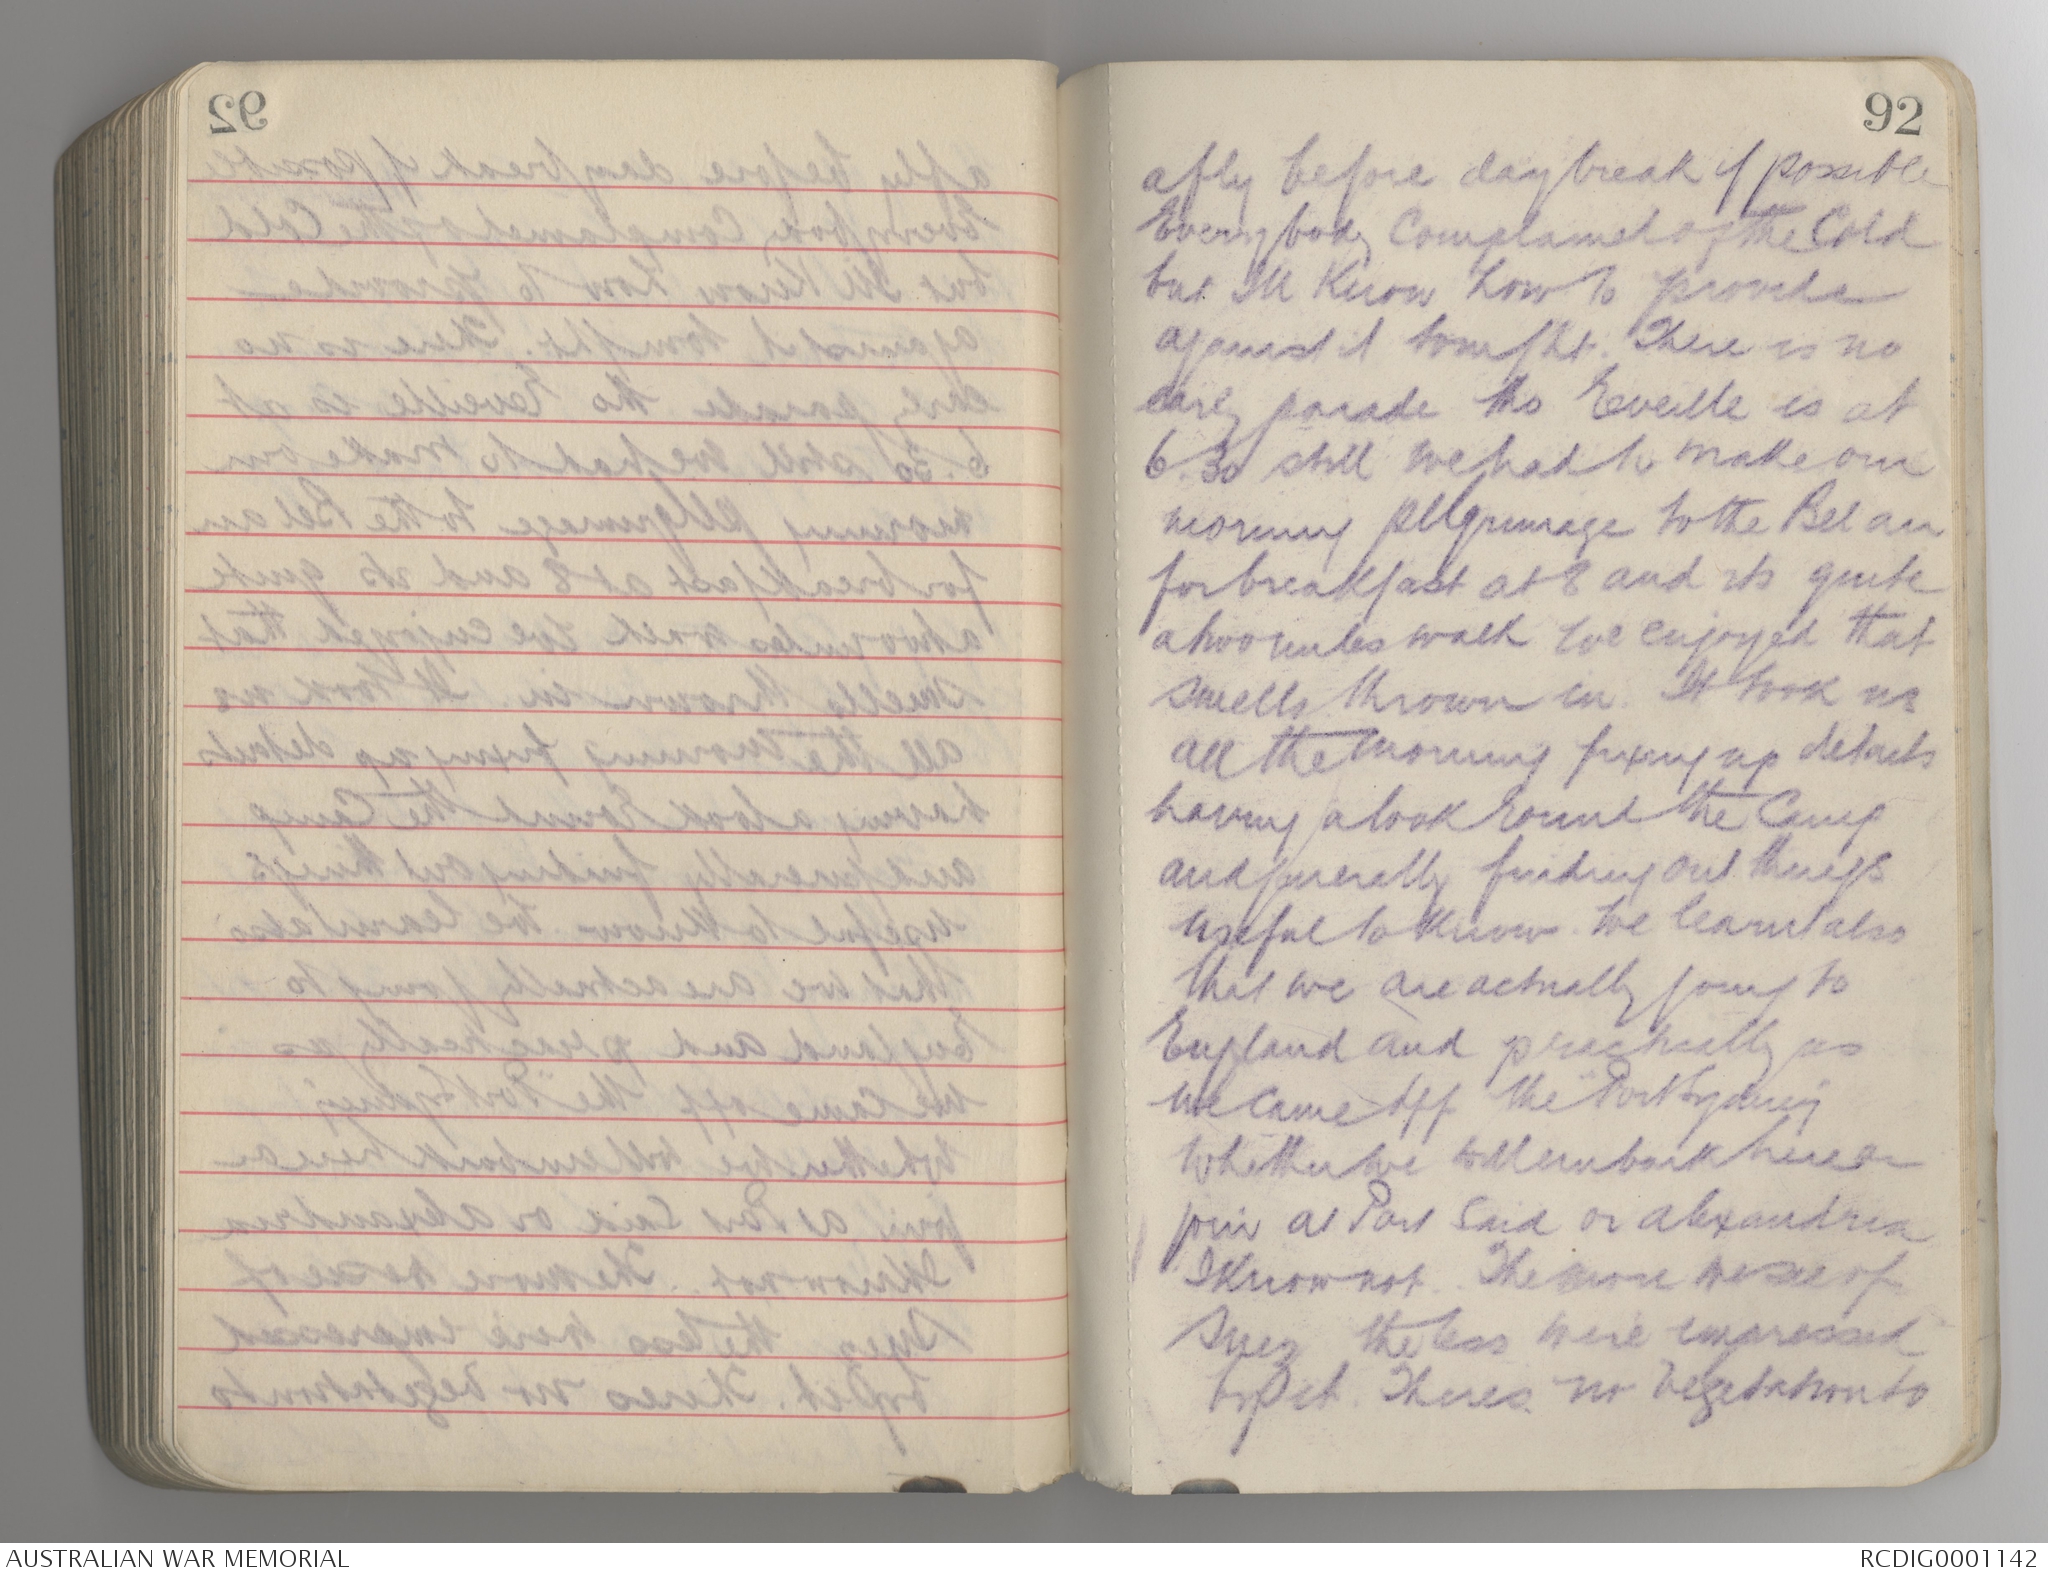 92
a fly before daybreak if possible
Everybody Complained of the Cold
but Ill Know how to provide
against it tonight. There is no
early parade tho Reveille is at
6.30 still we had to make our
morning pilgrimage to the Bel air
for breakfast at 8 and its quite
a two miles walk we enjoyed that
smells thrown in. It took us
all the morning fixing up details
having a look round the Camp
and generally finding out things
useful to Know. We learnt also
that we are actually going to
England and practically as
we came off the Port Sydney
Whether we will embark here or
join at Port Said or alexandria
I Know not. The more we see of
Suez the less we're impressed
by it. Theres no vegetation to
AUSTRALIAN WAR MEMORIAL
RCDIG0001142